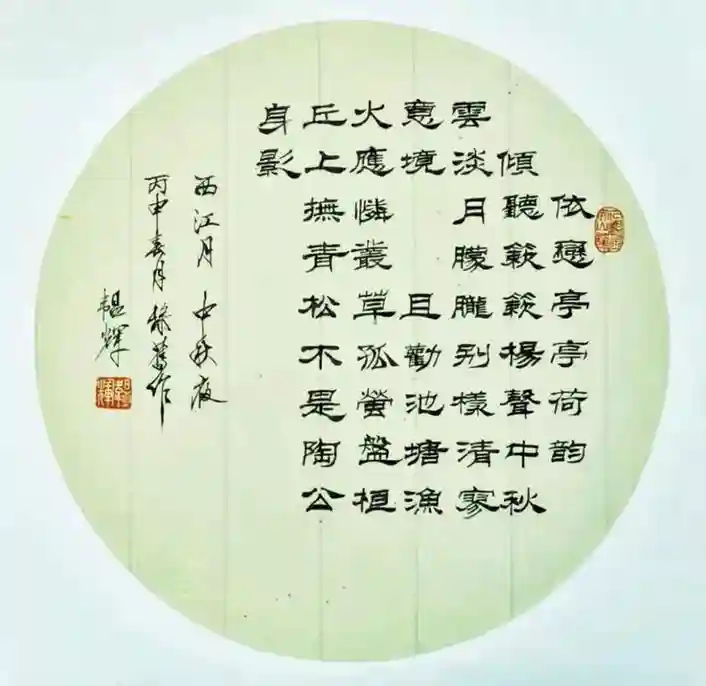 依戀亭亭荷韵
傾聽簌簌楊聲中秋
雲淡月朦朧别樣清寥
意境 且勸池塘漁
火應憐叢草孤螢盤桓
丘上撫青松不是陶公
身影
西江月 中秋夜
丙申春月作
韞輝